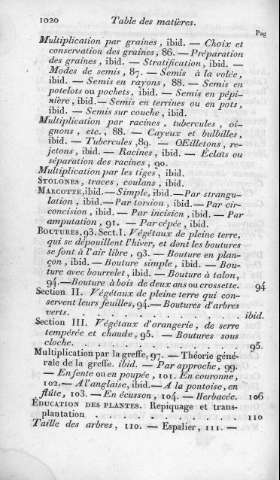 1020 Table des matières.
Pag
Multiplication par graines, ibid. — Choix et
conservation des graines, 86. — Préparation
des graines, ibid. — Stratification, ibid. —
Modes de semis, 87. — Semis à la volée,
ibid. — Semis en rayons, 88. — Semis en
potelots ou pochets, ibid. — Semis en pépi-
nière, ibid. — Semis en terrines ou en pots,
ibid. — Semis sur couche, ibid.
Multiplication par racines, tubercules, oi-
gnons, etc., 88. — Cayeux et bulbilles,
ibid. — Tubercules, 89. — Œilletons, re-
jetons, ibid. — Racines, ibid. — Éclats ou
séparation des racines, 90.
Multiplication par les tiges, ibid.
Stolones, traces, coulans, ibid.
Marcotte, ibid. — Simple, ibid. — Par strangu-
lation, ibid. — Par torsion, ibid. — Par cir-
concision, ibid. — Par incision, ibid. — Par
amputation, 91. — Par cépée, ibid.
Boutures, 93. Sect. I. Végétaux de pleine terre,
qui se dépouillent l'hiver, et dont les boutures
se font à l'air libre, 93. — Bouture en plan-
çon, ibid. — Bouture simple, ibid. — Bou-
ture avec bourrelet, ibid. — Bouture à talon,
94. — Bouture à bois de deux ans ou crossette. 94
Section II. Végétaux de pleine terre qui con-
servent leurs feuilles, 94. — Boutures d'arbres
verts. ibid.
Section III. Végétaux d'orangerie, de serre
tempérée et chaude, 95. — Boutures sous
cloche. 95.
Multiplication par la greffe, 97. — Théorie géné-
rale de la greffe. ibid. — Par approche, 99.
— En fente ou en poupée, 101. En couronne,
102. — A l'anglaise, ibid. — A la pontoise, en
flûte, 103. — En écusson, 104. — Herbacée. 106
Éducation des plantes. Repiquage et trans-
plantation 110
Taille des arbres, 110. — Espalier, 111. —